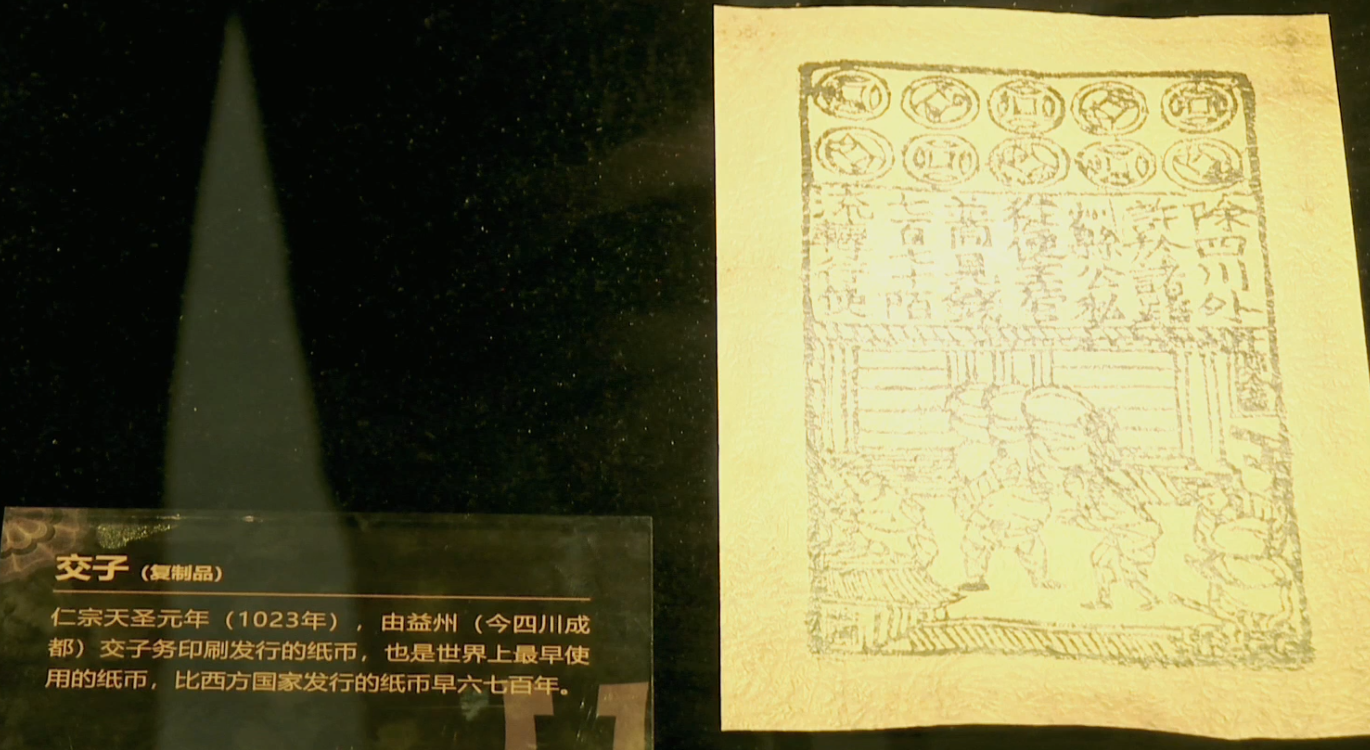 交子（复制品）
仁宗天圣元年（1023年），由益州（今四川成
都）交子务印刷发行的纸币，也是世界上最早使
用的纸币，比西方国家发行的纸币早六七百年。
除四川外
許於諸路
州縣公私
從便主管
並同見錢
七百七十陌
流轉行使